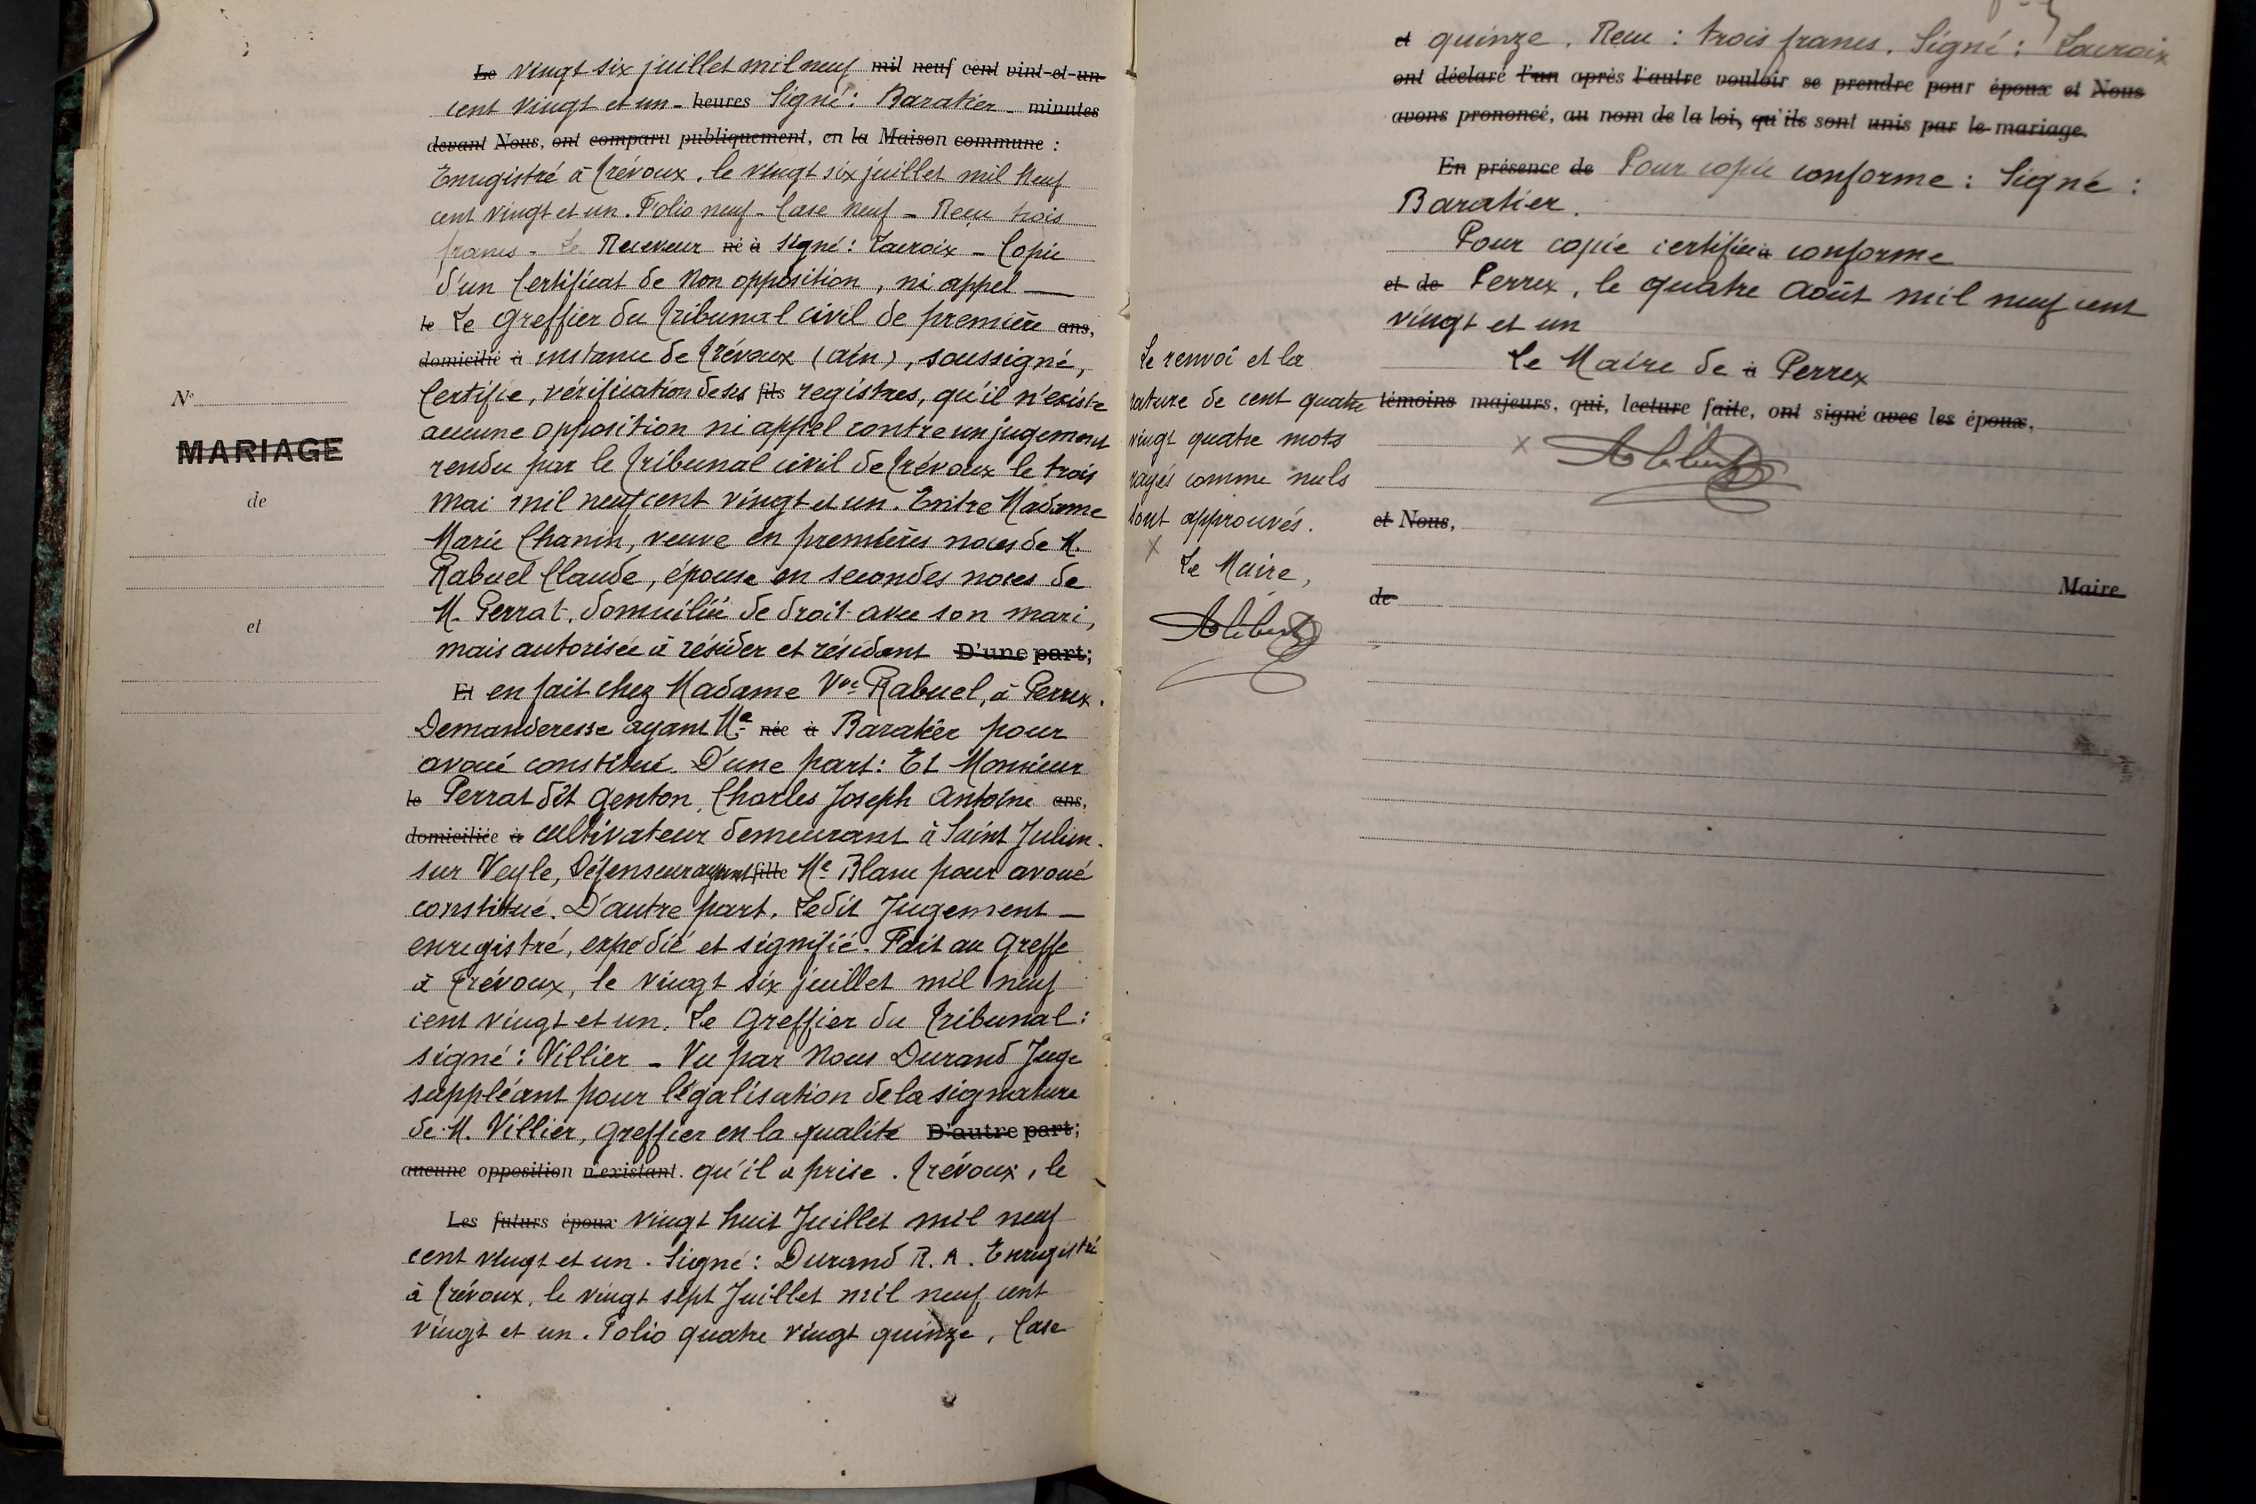 Le vingt six juillet mil neuf mil neuf cent vint-et-un
cent vingt et un - heures Signé : Baratier - minutes
devant Nous, ont comparu publiquement, en la Maison commune :
Enregistré à Trévoux, le vingt six juillet mil neuf
cent vingt et un. Folio neuf - Case neuf - Reçu trois
francs - Le Receveur né à signé : Lacroix - Copie
d'un Certificat de non opposition, ni appel —
le Le Greffier du Tribunal civil de première ans,
domicilié à instance de Trévoux (ain), soussigné,
Certifie, vérification de ses fils registres, qu'il n'existe
aucune opposition ni appel contre un jugement
rendu par le Tribunal civil de Trévoux le trois
Mai mil neuf cent vingt et un. Entre Madame
Marie Chanin, veuve en premières noces de M.
Rabuel Claude, épouse en secondes noces de
M. Perrat, domiciliée de droit avec son mari,
mais autorisée à résider et résidant D'une part;
Et en fait chez Madame Vve Rabuel, à Perrex.
Demanderesse ayant Me née à Baratier pour
avoué constitué. D'une part : Et Monsieur
le Perrat dit Genton, Charles Joseph Antoine ans,
domiciliée à cultivateur demeurant à Saint Julien.
sur Veyle, Défenseur ayant fille Me Blanc pour avoué
constitué. D'autre part. Ledit Jugement —
enregistré, expédié et signifié. Fait au Greffe
à Trévoux, le vingt six juillet mil neuf
cent vingt et un. Le Greffier du Tribunal :
signé : Villier - Vu par Nous Durand Juge
suppléant pour légalisation de la signature
de M. Villier, Greffier en la qualité D'autre part;
aucune opposition n'existant. qu'il a prise. Trévoux, le
Les futurs époux vingt huit Juillet mil neuf
cent vingt et un. Signé : Durand R. A. Enregistré
à Trévoux, le vingt sept Juillet mil neuf cent
vingt et un. Folio quatre vingt quinze, Case
No
MARIAGE
de
et
et quinze. Reçu : trois francs. Signé : Lacroix
ont déclaré l'un après l'autre vouloir se prendre pour époux et Nous
avons prononcé, au nom de la loi, qu'ils sont unis par le mariage.
En présence de Pour copie conforme : Signé :
Baratier.
Pour copie certifiée à conforme
et de Perrex, le quatre Août mil neuf cent
vingt et un
Le Maire de à Perrex
témoins majeurs, qui, lecture faite, ont signé avec les époux,
et Nous,
Maire
de
Le renvoi et la
rature de cent quatre
vingt quatre mots
rayés comme nuls
sont approuvés.
Le Maire,